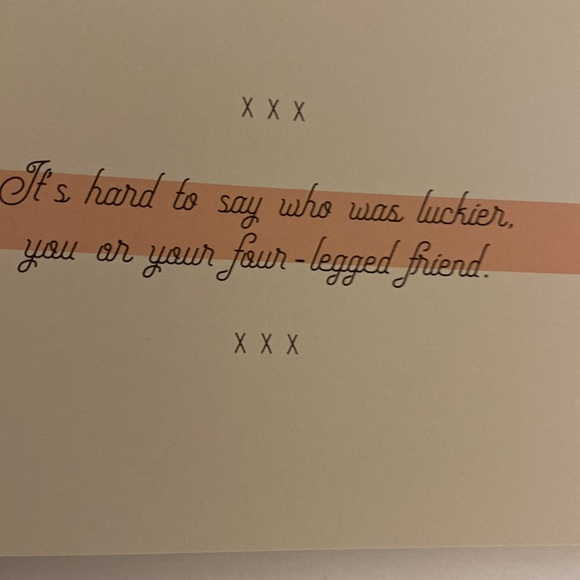 X X X
It's hard to say who was luckier,
you or your four-legged friend.
X X X